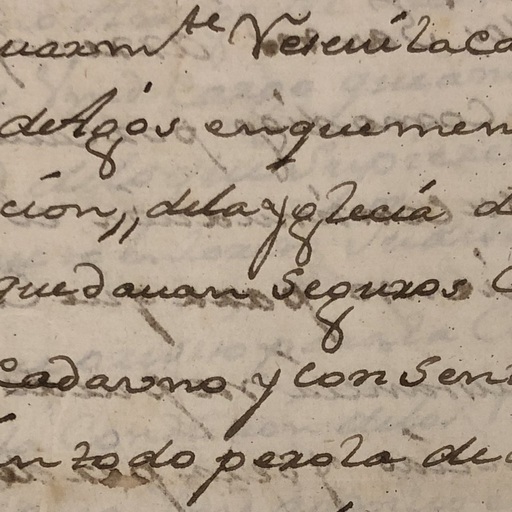 uarmte Receui la ca
de Agós en que men
ción,, dela yglecía d
quedauan seguros
cada uno y con sen
en todo pero la de